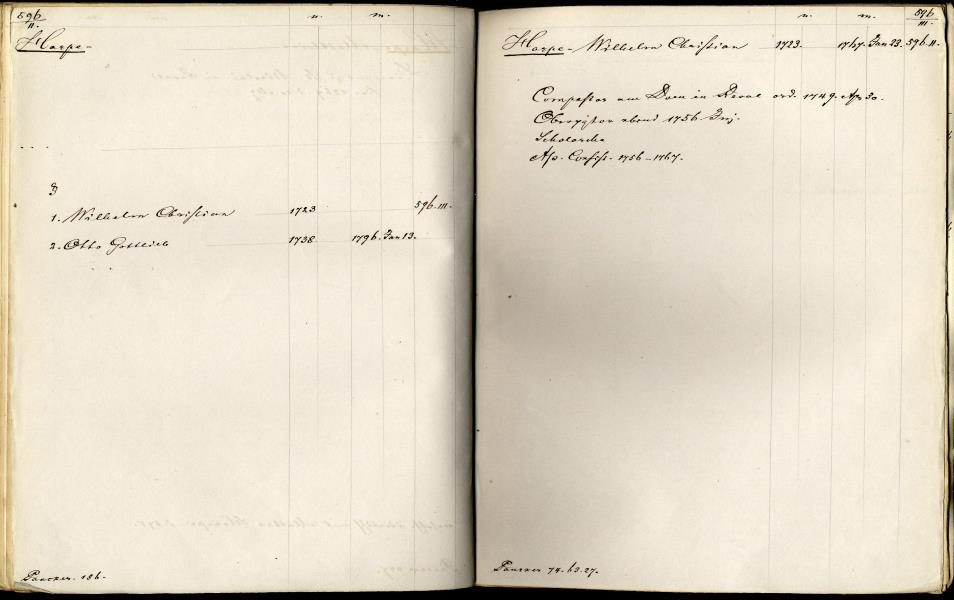 596
II.
n. m.
Harpe-
3
1. Wilhelm Christian 1723 596.III.
2. Otto Gottlieb 1738 1796. Jan 13.
Paucker. 186.
n. m. 596
III.
Harpe- Wilhelm Christian 1723. 1767. Jan 23. 596.II.
Compastor am Dom in Reval ord. 1749. Apr 30.
Oberpastor ebend 1756
Scholarche
Ass. Consist. 1756-1767.
Paucker 74. 63. 27.